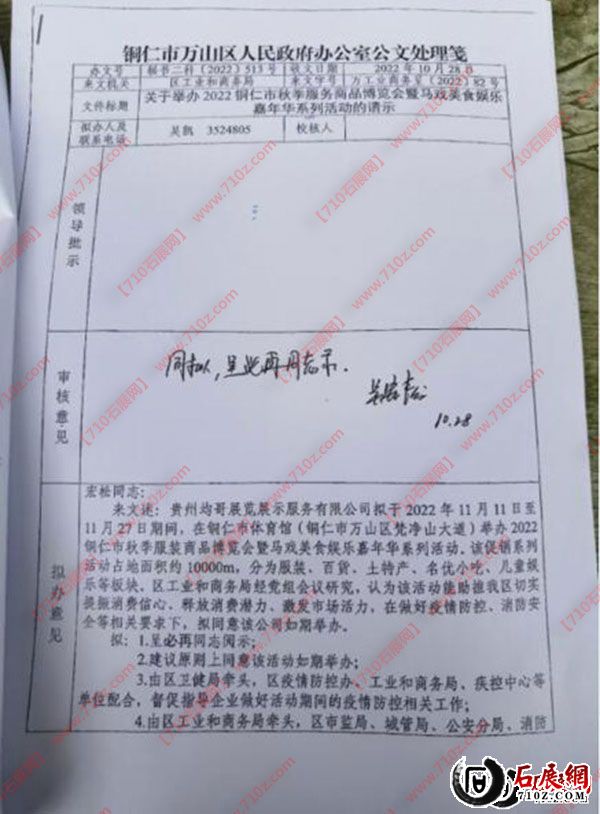 铜仁市万山区人民政府办公室公文处理笺
办文号 秘书二科（2022）513号 收文日期 2022年10月28日
来文机关 区工业和商务局 来文字号 万工业商务呈（2022）82号
文件标题 关于举办2022铜仁市秋季服务商品博览会暨马戏美食娱乐
嘉年华系列活动的请示
拟办人及
联系电话 吴凯 3524805 校核人
领导批示
审核意见
同拟，呈必再同志示。
10.28
拟办意见
宏松同志：
来文述：贵州均哥展览展示服务有限公司拟于2022年11月11日至
11月27日期间，在铜仁市体育馆（铜仁市万山区梵净山大道）举办2022
铜仁市秋季服装商品博览会暨马戏美食娱乐嘉年华系列活动。该促销系列
活动占地面积约10000m，分为服装、百货、土特产、名优小吃、儿童娱
乐等板块。区工业和商务局经党组会议研究，认为该活动能助推我区切实
提振消费信心、释放消费潜力、激发市场活力，在做好疫情防控、消防安
全等相关要求下，拟同意该公司如期举办。
拟：1.呈必再同志阅示；
2.建议原则上同意该活动如期举办；
3.由区卫健局牵头，区疫情防控办、工业和商务局、疾控中心等
单位配合，督促指导企业做好活动期间的疫情防控相关工作；
4.由区工业和商务局牵头，区市监局、城管局、公安分局、消防
【710石展网】www.710z.com
石展網
710Z.COM